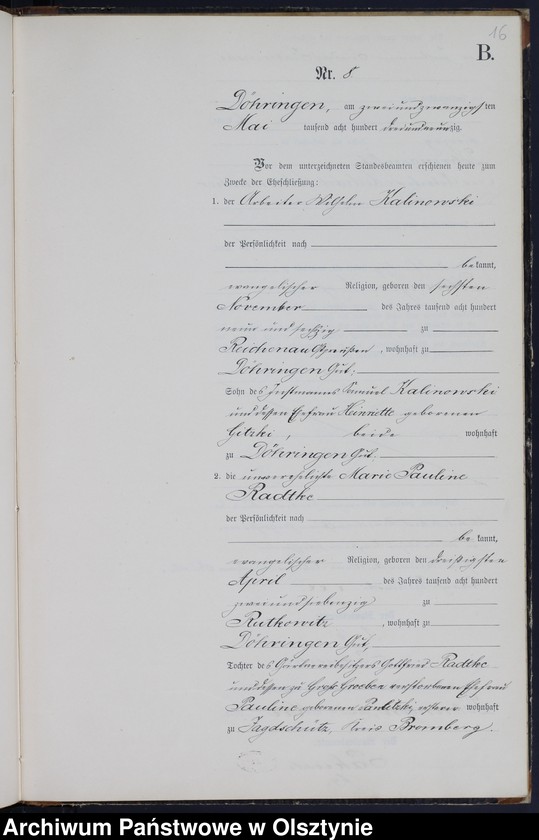 16
B.
Nr. 8
Döhringen, am zweiundzwanzigsten
Mai tausend acht hundert dreiundneunzig.
Vor dem unterzeichneten Standesbeamten erschienen heute zum
Zwecke der Eheschließung:
1. der Arbeiter Wilhelm Kalinowski
der Persönlichkeit nach
bekannt,
evangelischer Religion, geboren den sechsten
November des Jahres tausend acht hundert
neun und sechzig zu
Reichenau Ostpreußen, wohnhaft zu
Döhringen Gut,
Sohn des Instmanns Samuel Kalinowski
und dessen Ehefrau Heinriette geborenen
Gitzki, beide wohnhaft
zu Döhringen Gut,
2. die unverehelichte Marie Pauline
Radtke
der Persönlichkeit nach
bekannt,
evangelischer Religion, geboren den dreißigsten
April des Jahres tausend acht hundert
zweiundsiebenzig zu
Ruthowitz, wohnhaft zu
Döhringen Gut,
Tochter des Gärtnereibesitzers Gottfried Radtke
und dessen zu Groß Groeben verstorbenen Ehefrau
Pauline geborenen, ersterer wohnhaft
zu Jagdschütz, Kreis Bromberg.
Archiwum Państwowe w Olsztynie